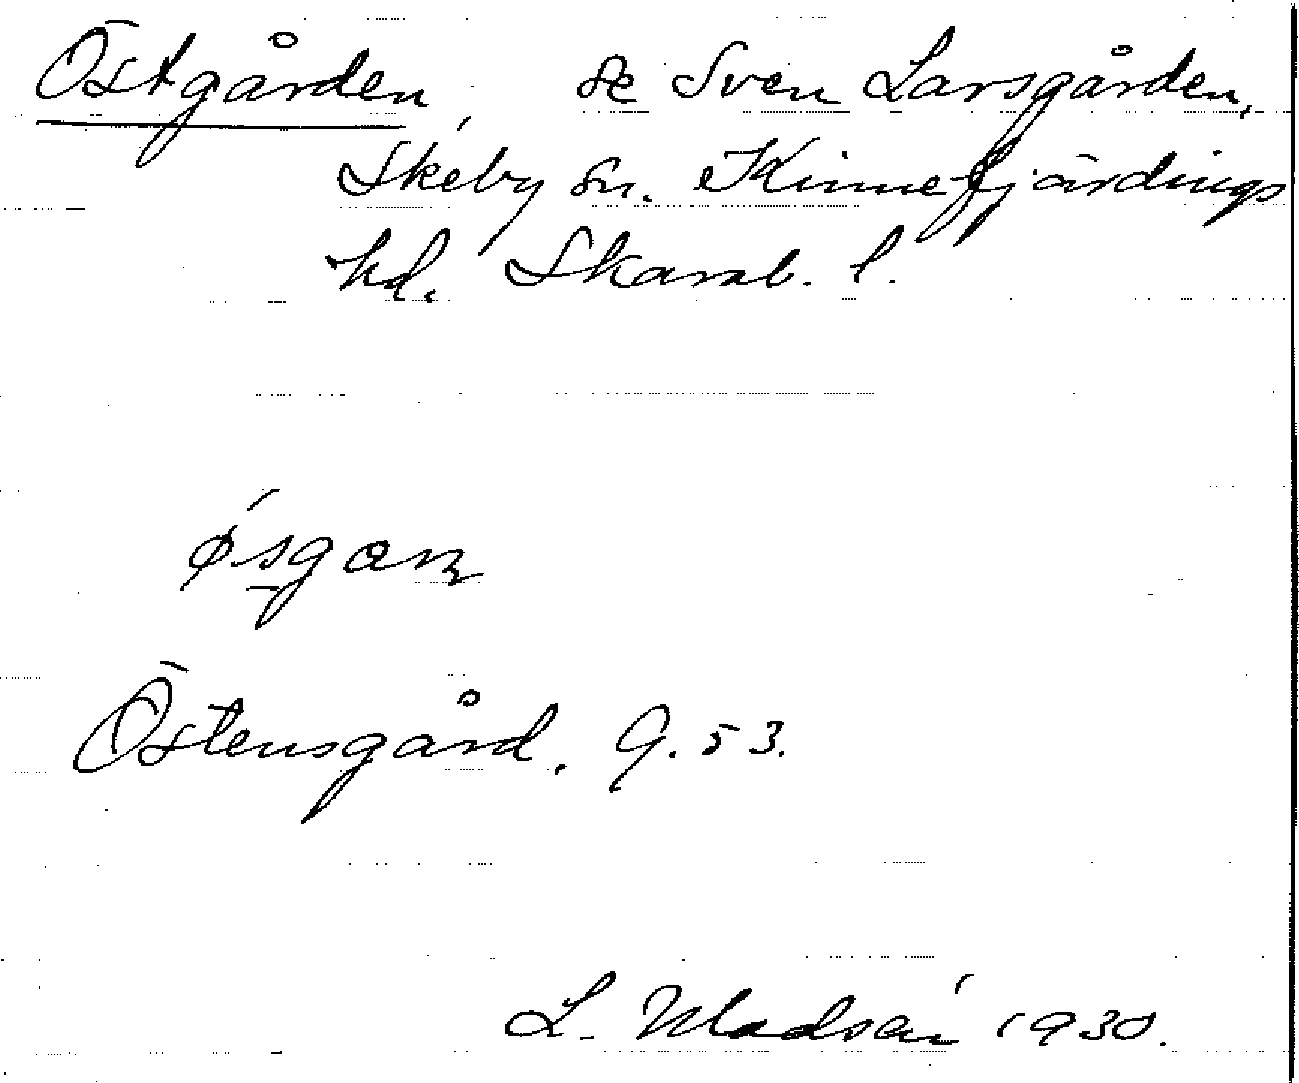 Östgården, se Sven Larsgården,
Skeby sn. Kinnefjärdings
hd. Skarab. l.
Östensgård. G. 53.
L. Madsén 1930.